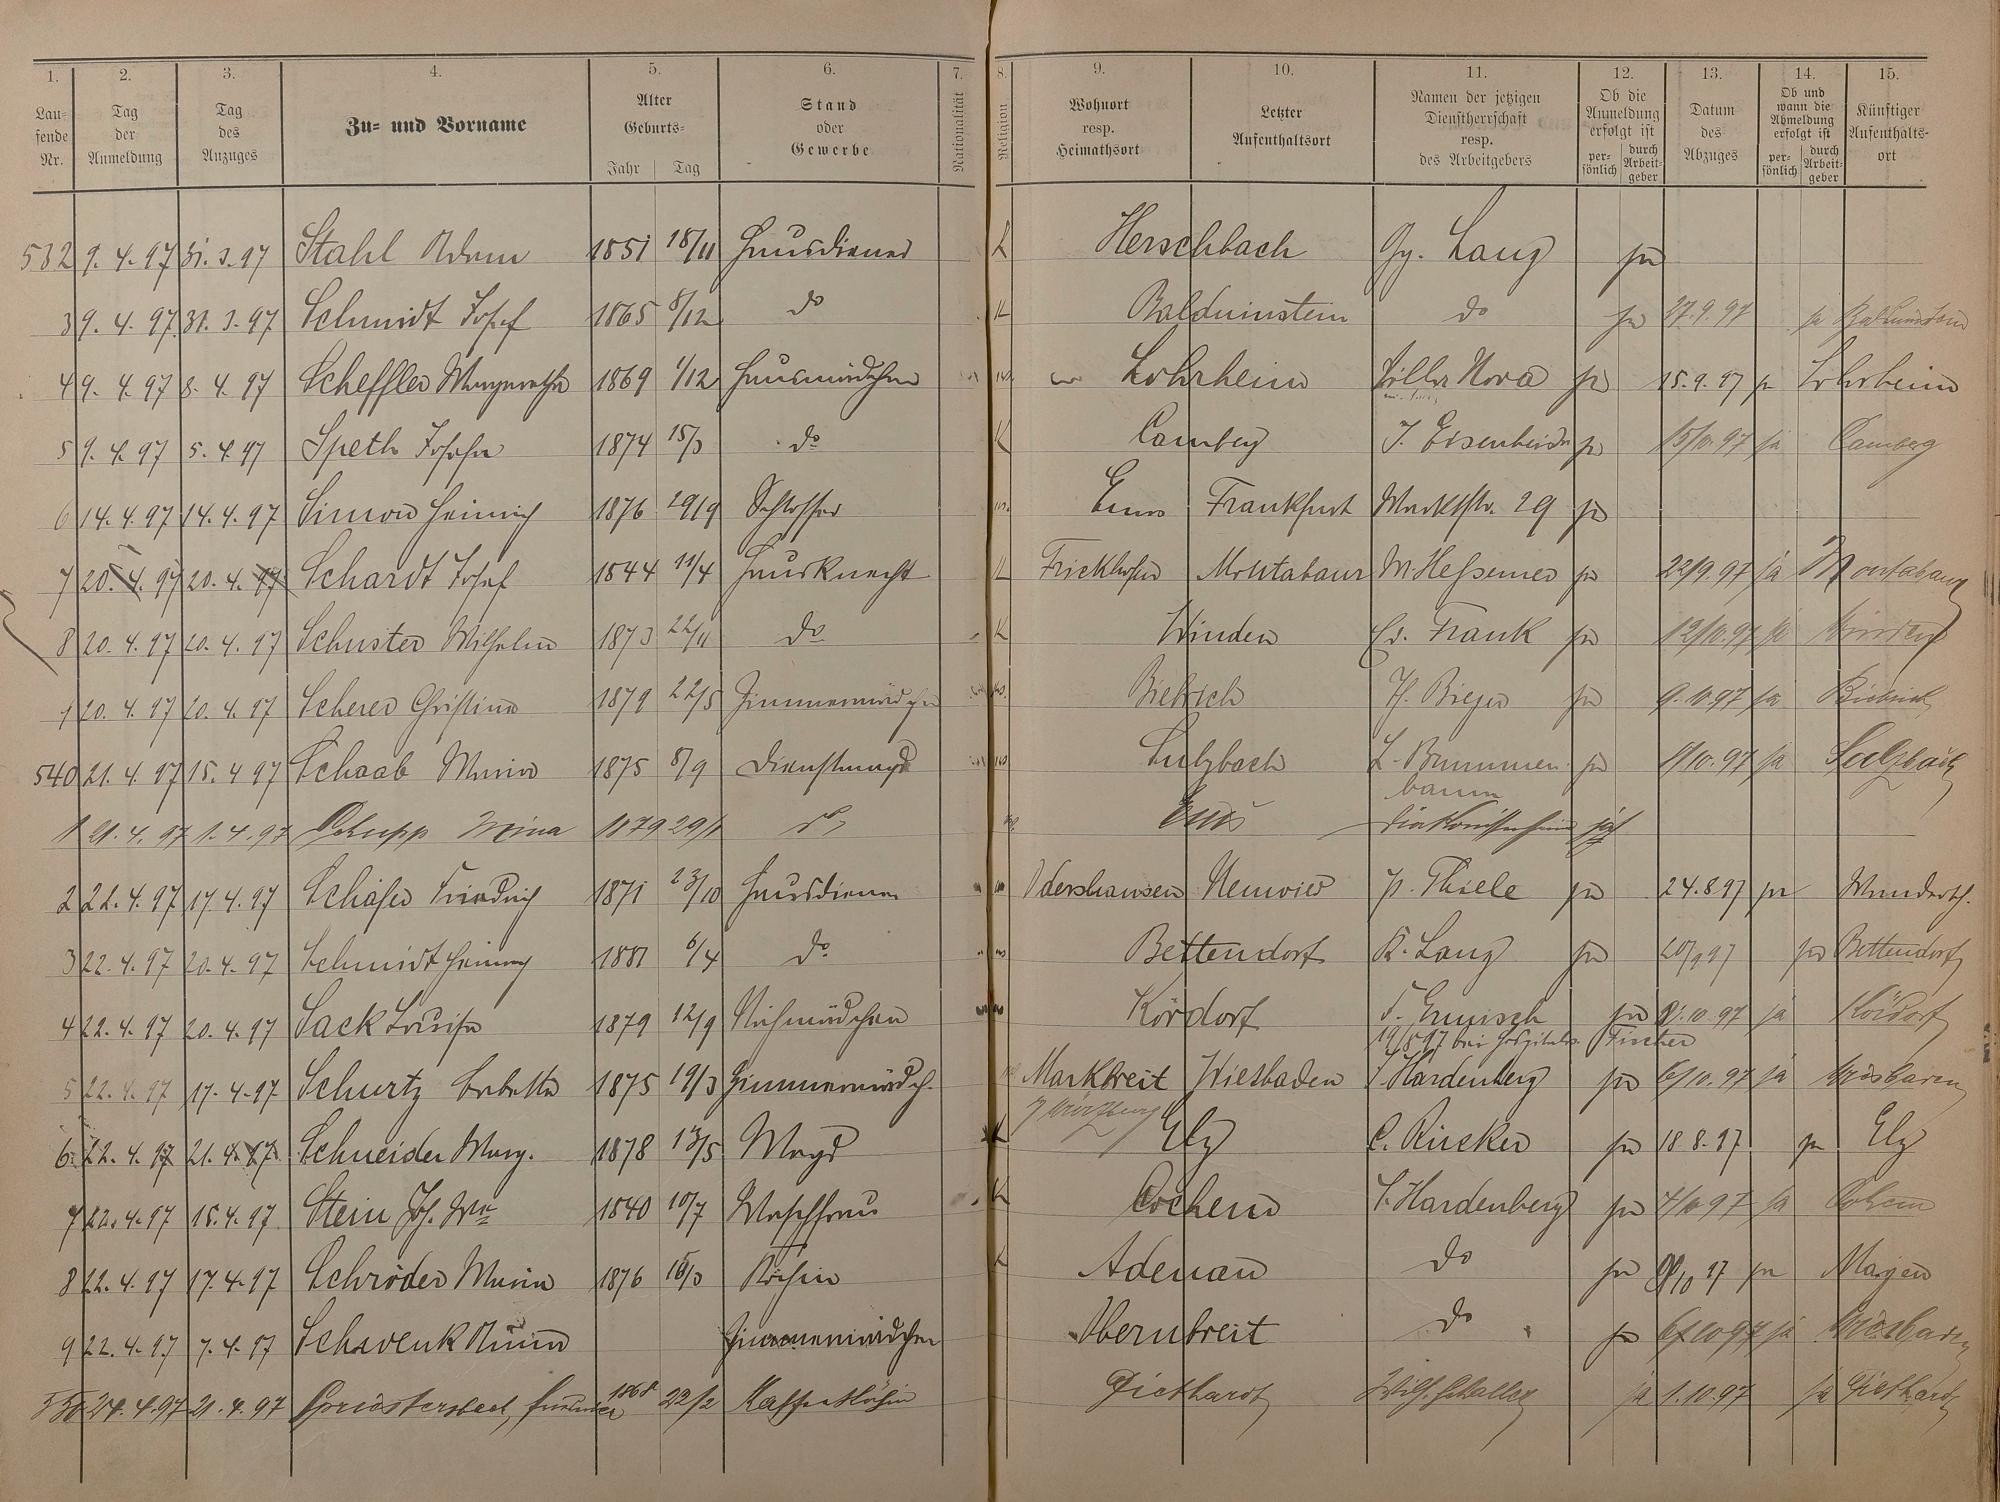 1. 2. 3. 4. 5. 6. 7. 8. 9. 10. 11. 12. 13. 14. 15.
Laufende Nr. Tag der Anmeldung Tag des Anzuges Zu- und Vorname Alter Geburts- Jahr Tag Stand oder Gewerbe Nationalität Religion Wohnort resp. Heimathsort Letzter Aufenthaltsort Namen der jetzigen Dienstherrschaft resp. des Arbeitgebers Ob die Anmeldung erfolgt ist persönlich durch Arbeitgeber Datum des Abzuges Ob und wann die Abmeldung erfolgt ist persönlich durch Arbeitgeber Künftiger Aufenthaltsort
532 9. 4. 97 31. 3. 97 Stahl Adam 1851 18/11 Hausdiener K Herschbach Gg. Lang ja
3 9. 4. 97 31. 3. 97 Schmidt Josef 1865 8/12 do K Balduinstein do ja 27. 9. 97 ja Balduinstein
4 9. 4. 97 8. 4. 97 Scheffler Margarethe 1869 1/12 Hausmädchen Lohrheim Villa Nova ja 15. 9. 97 ja Lohrheim
5 9. 4. 97 5. 4. 97 Speth Josefa 1874 15/3 do K Camberg J. ja 15/10. 97 ja Camberg
6 14. 4. 97 14. 4. 97 Simon Heinrich 1876 29/9 Schlosser Ems Frankfurt Marktstr. 29 ja
7 20. 4. 97 20. 4. 97 Schardt Josef 1844 11/4 Hausknecht K Frickhofen Montabaur M Hessemer ja 22/9. 97 ja Montabaur
8 20. 4. 97 20. 4. 97 Schuster Wilhelm 1873 22/11 do K Winden Frank ja 12/10. 97 ja Winden
9 20. 4. 97 20. 4. 97 Scherer Christine 1879 22/5 Zimmermädchen Biebrich Bieger ja 9. 10. 97 ja Biebrich
540 21. 4. 97 15. 4. 97 Schaab Maria 1875 8/9 Dienstmagd Sulzbach L. Brummenbaum ja /10. 97 ja Sulzbach
1 21. 4. 97 1. 4. 97 Schupp Mina 1879 29/1 do Ems Diakonissenheim ja
2 22. 4. 97 17. 4. 97 Schäfer Friedrich 1871 23/10 Hausdiener Odershausen Neuwied P. Thiele ja 24. 8. 97 ja
3 22. 4. 97 20. 4. 97 Schmidt Heinrich 1881 6/4 do Bettendorf K. Lang ja 20/9 97 ja Bettendorf
4 22. 4. 97 20. 4. 97 Sack Louise 1879 12/9 Nähmädchen Kördorf F. Gmisch ja 10. 97 ja Kördorf
19/5 97 bei Hospitals. Fischer
5 22. 4. 97 17. 4. 97 Schurtz Babette 1875 19/3 Zimmermädch. Marktbreit Wiesbaden Hardenberg ja 6/10. 97 ja Wiesbaden
Würzburg
6. 22. 4. 97 21. 4. 97. Schneider Marg. 1878 13/5 Magd K Elz C. Rücker ja 18. 8. 97 ja Elz
7 22. 4. 97 15. 4. 97 Stein Jos. Ww 1840 10/7 Waschfrau K Cochem Hardenberg ja 4/10 97 ja Cohem
8 22. 4. 97 17. 4. 97 Schröder Maria 1876 15/3 Köchin K Adenau do ja /10 97 ja Mayen
9 22. 4. 97 7. 4. 97 Schwenk Zimmermädchen Obernbreit do ja 6/10 97 ja Wiesbaden
550 24. 4. 97 21. 4. 97 1868 22/2 Kaffeeköchin Giekhardt Wilh. ja 1. 10. 97 ja Giekhardt